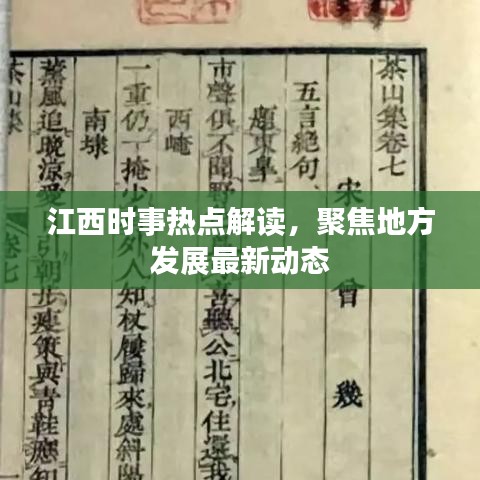 江西时事热点解读，聚焦地方
发展最新动态
茶山集卷七
宋 曾 幾
五言絕句
題東皋
市聲俱不聞野 喜聽公北宅住還我
西崦
一重仍一掩少 外人知杖屨歸來處斜陽
南埭
薰風追晚涼愛 引朝步瘦策與青鞋應知
茶山集 卷七